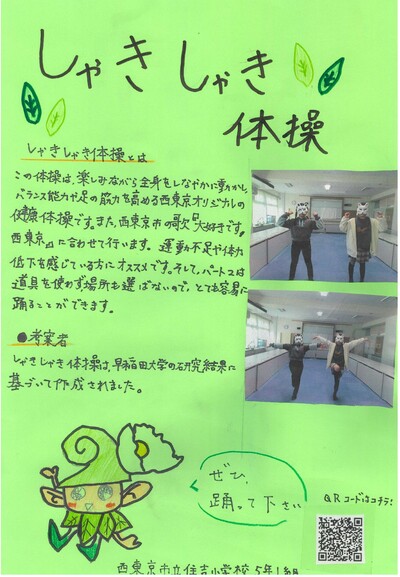 しゃきしゃき
体操
しゃきしゃき体操とは
この体操は、楽しみながら全身をしなやかに動かし、
バランス能力や足の筋力を高める西東京オリジナルの
健康体操です。また、西東京市の歌『大好きです
西東京』に合わせて行います。運動不足や体力
低下を感じている方にオススメです。そして、パート2は
道具を使わず場所も選ばないので、とても容易に
踊ることができます。
●考案者
しゃきしゃき体操は、早稲田大学の研究結果に
基づいて作成されました。
ぜひ、
踊って下さい
QRコードはコチラ!
西東京市立住吉小学校5年1組